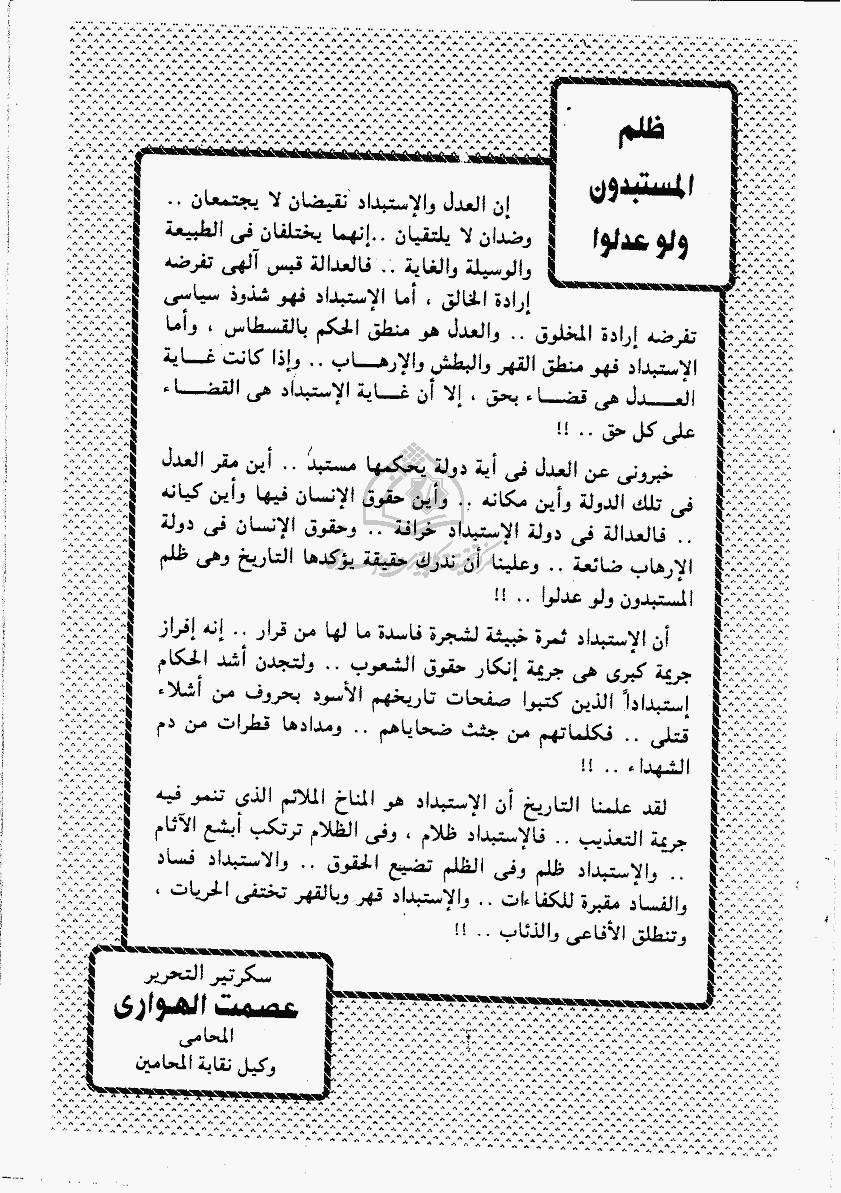 ظلم
المستبدون
ولو عدلوا
إن العدل والإستبداد نقيضان لا يجتمعان ..
وضدان لا يلتقيان ..إنهما يختلفان فى الطبيعة
والوسيلة والغاية .. فالعدالة قبس آلهى تفرضه
إرادة الخالق ، أما الإستبداد فهو شذوذ سياسى
تفرضه إرادة المخلوق .. والعدل هو منطق الحكم بالقسطاس ، وأما
الإستبداد فهو منطق القهر والبطش والإرهـــاب .. وإذا كانت غـــاية
العـــدل هى قضـــاء بحق ، إلا أن غـــاية الإستبداد هى القضـــاء
على كل حق .. !!
خبرونى عن العدل فى أية دولة يحكمها مستبدَ .. أين مقر العدل
فى تلك الدولة وأين مكانه .. وأين حقوق الإنسان فيها وأين كيانه
.. فالعدالة فى دولة الإستبداد خرافة .. وحقوق الإنسان فى دولة
الإرهاب ضائعة .. وعلينا أن ندرك حقيقة يؤكدها التاريخ وهى ظلم
المستبدون ولو عدلوا .. !!
أن الإستبداد ثمرة خبيثة لشجرة فاسدة ما لها من قرار .. إنه إفراز
جريمة كبرى هى جريمة إنكار حقوق الشعوب .. ولتجدن أشد الحكام
إستبداداً الذين كتبوا صفحات تاريخهم الأسود بحروف من أشلاء
قتلى .. فكلماتهم من جثث ضحاياهم .. ومدادها قطرات من دم
الشهداء .. !!
لقد علمنا التاريخ أن الإستبداد هو المناخ الملائم الذى تنمو فيه
جريمة التعذيب .. فالإستبداد ظلام ، وفى الظلام ترتكب أبشع الآثام
.. والإستبداد ظلم وفى الظلم تضيع الحقوق .. والاستبداد فساد
والفساد مقبرة للكفاءات .. والإستبداد قهر وبالقهر تختفى الحريات ،
وتنطلق الأفاعى والذئاب .. !!
سكرتير التحرير
عصمت الهوارى
المحامى
وكيل نقابة المحامين